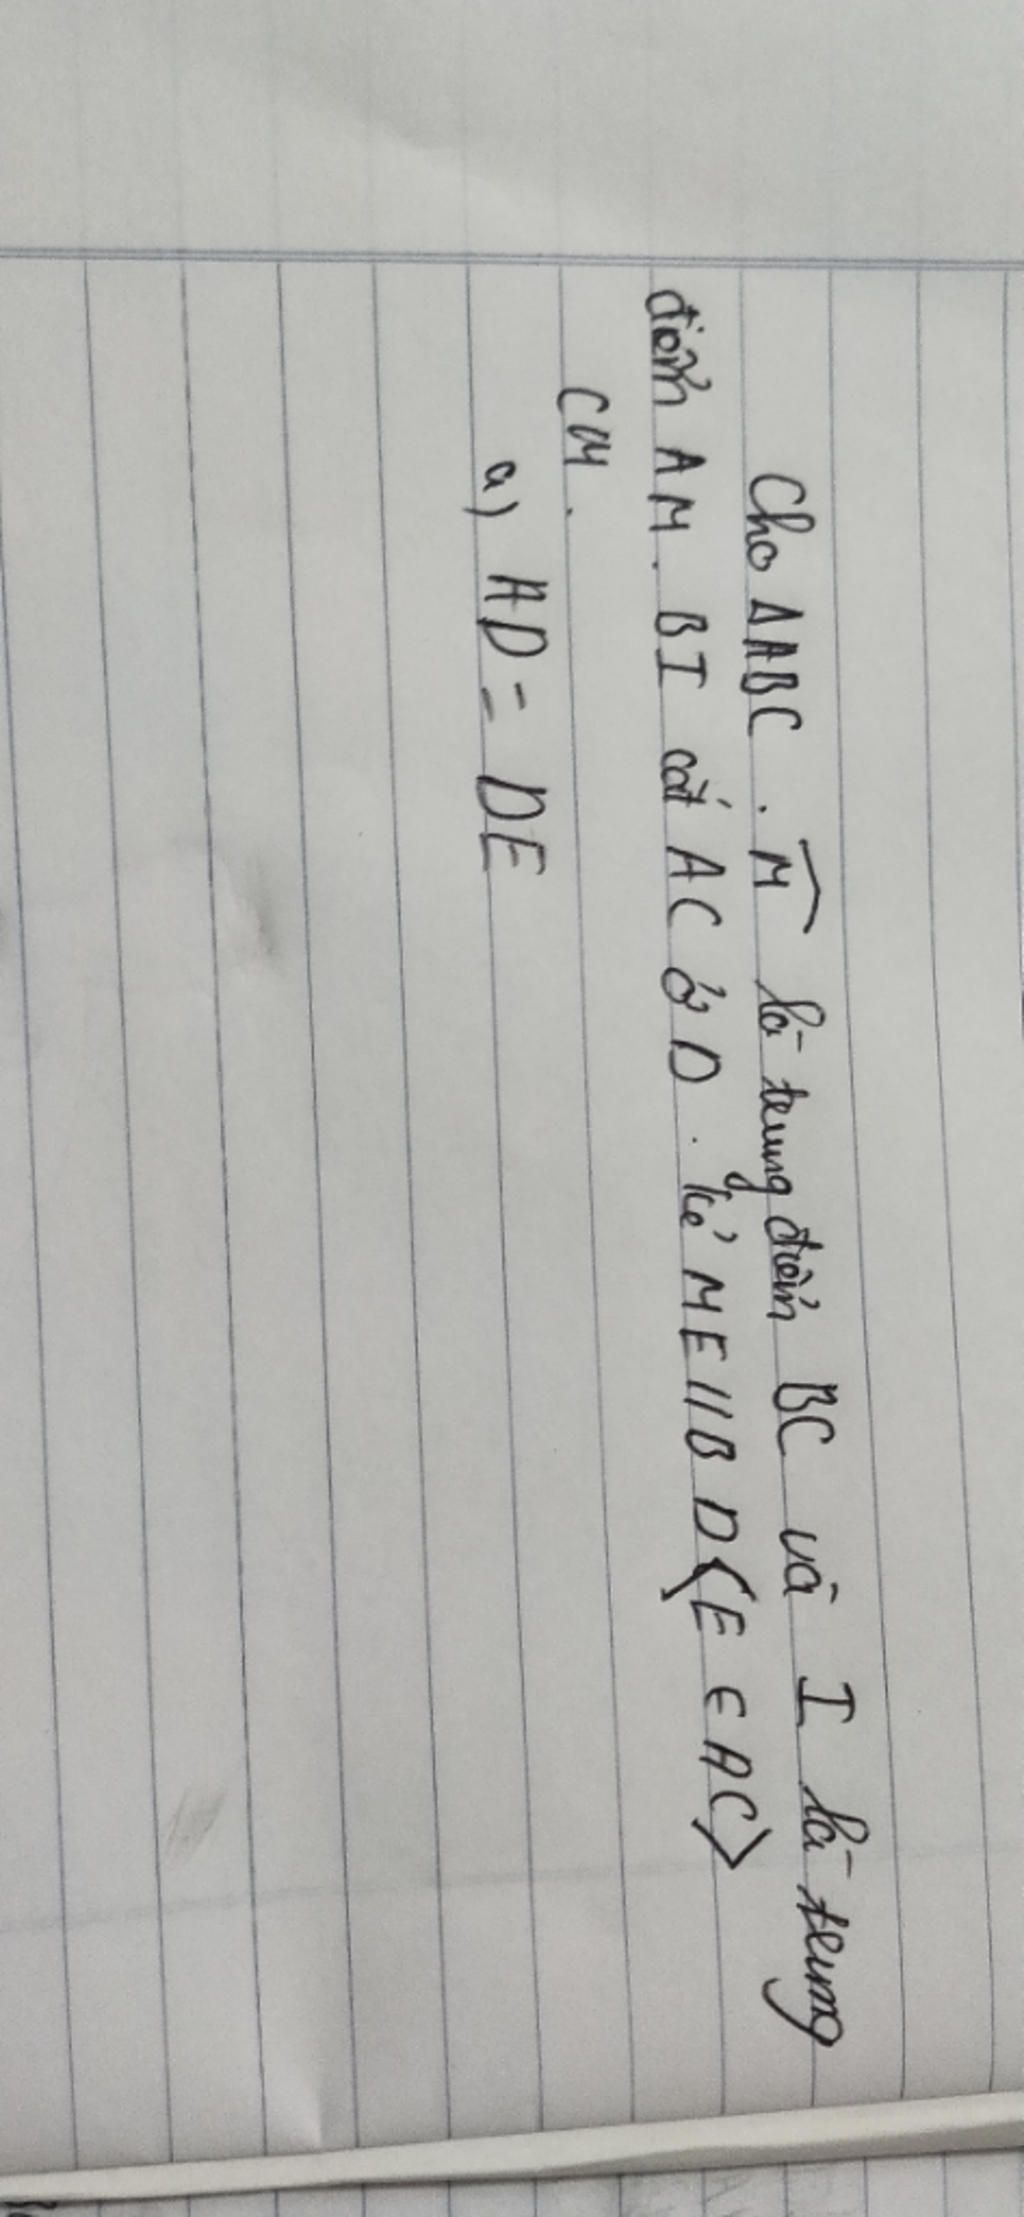 Cho ΔABC. M là trung điểm BC và I là trung
điểm AM. BI cắt AC ở D. Kẻ ME // BD (E ∈ AC)
CM.
a) AD = DE